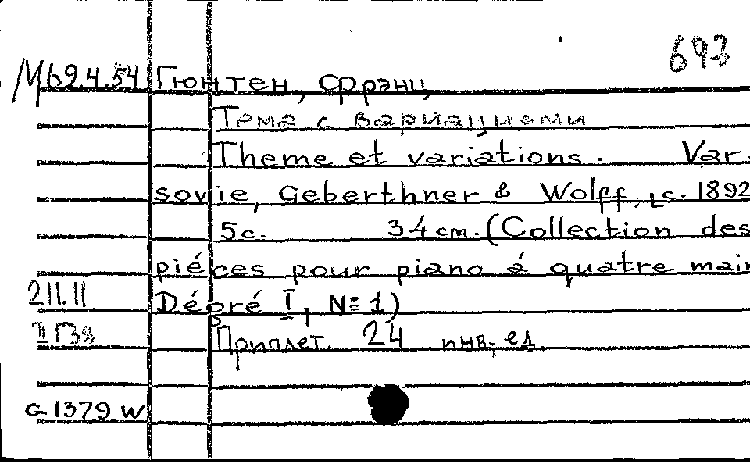 693
M 69.4.54 Гюнтен, Фрэнц
Тема с вариациями
Theme et variations. Var.
sovie, Geberthner & Wolff, c. 1892
5c. 34 cm. (Collection des
piéces pour piano á quatre main
211.11 Dégré I, N: 1)
Приплет. 24 инв. ед.
G 1379 W